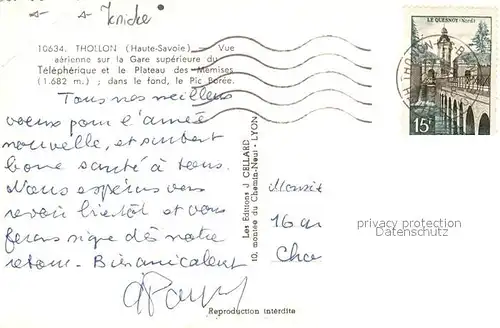 Knicke
10634. THOLLON (Haute-Savoie) — Vue
aérienne sur la Gare supérieure du
Téléphérique et le Plateau des Mémises
(1.682 m.) ; dans le fond, le Pic Borée.
LE QUESNOY (Nord)
15F
Tous nos meilleurs
voeux pour l'année
nouvelle, et surtout
bonne santé à tous.
Nous espérons vous
revoir bientôt et vous
ferons signe dès notre
retour. Bien amicalement
Les Editions J. CELLARD
10, montée du Chemin-Neuf - LYON
Monsie
16 av
Cha
privacy protection
Datenschutz
Reproduction interdite